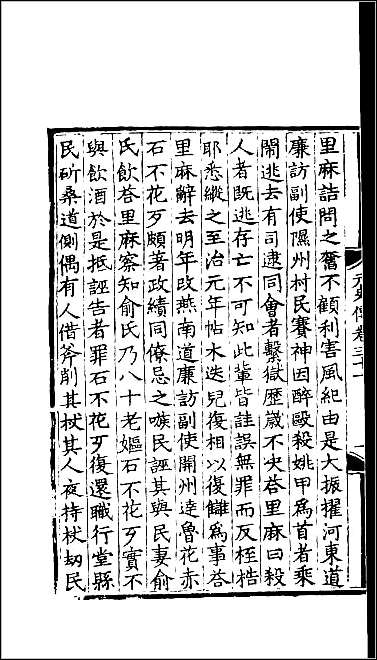 元史傳卷三十一
里麻詰問之奮不顧利害風紀由是大振擢河東道
廉訪副使隰州村民賽神因醉毆殺姚甲爲首者乘
鬧逃去有司逮同會者繫獄歷歲不央荅里麻曰殺
人者既逃存亡不可知此輩皆詿誤無罪而反桎梏
耶悉縱之至治元年帖木迭兒復相以復讎爲事荅
里麻辭去明年改燕南道廉訪副使開州達魯花赤
石不花歹頗著政績同僚忌之嗾民誣其與民妻俞
氏飲荅里麻察知俞氏乃八十老嫗石不花歹實不
與飲酒於是抵誣告者罪石不花歹復還職行堂縣
民斫桑道側偶有人借斧削其杖其人夜持杖劫民